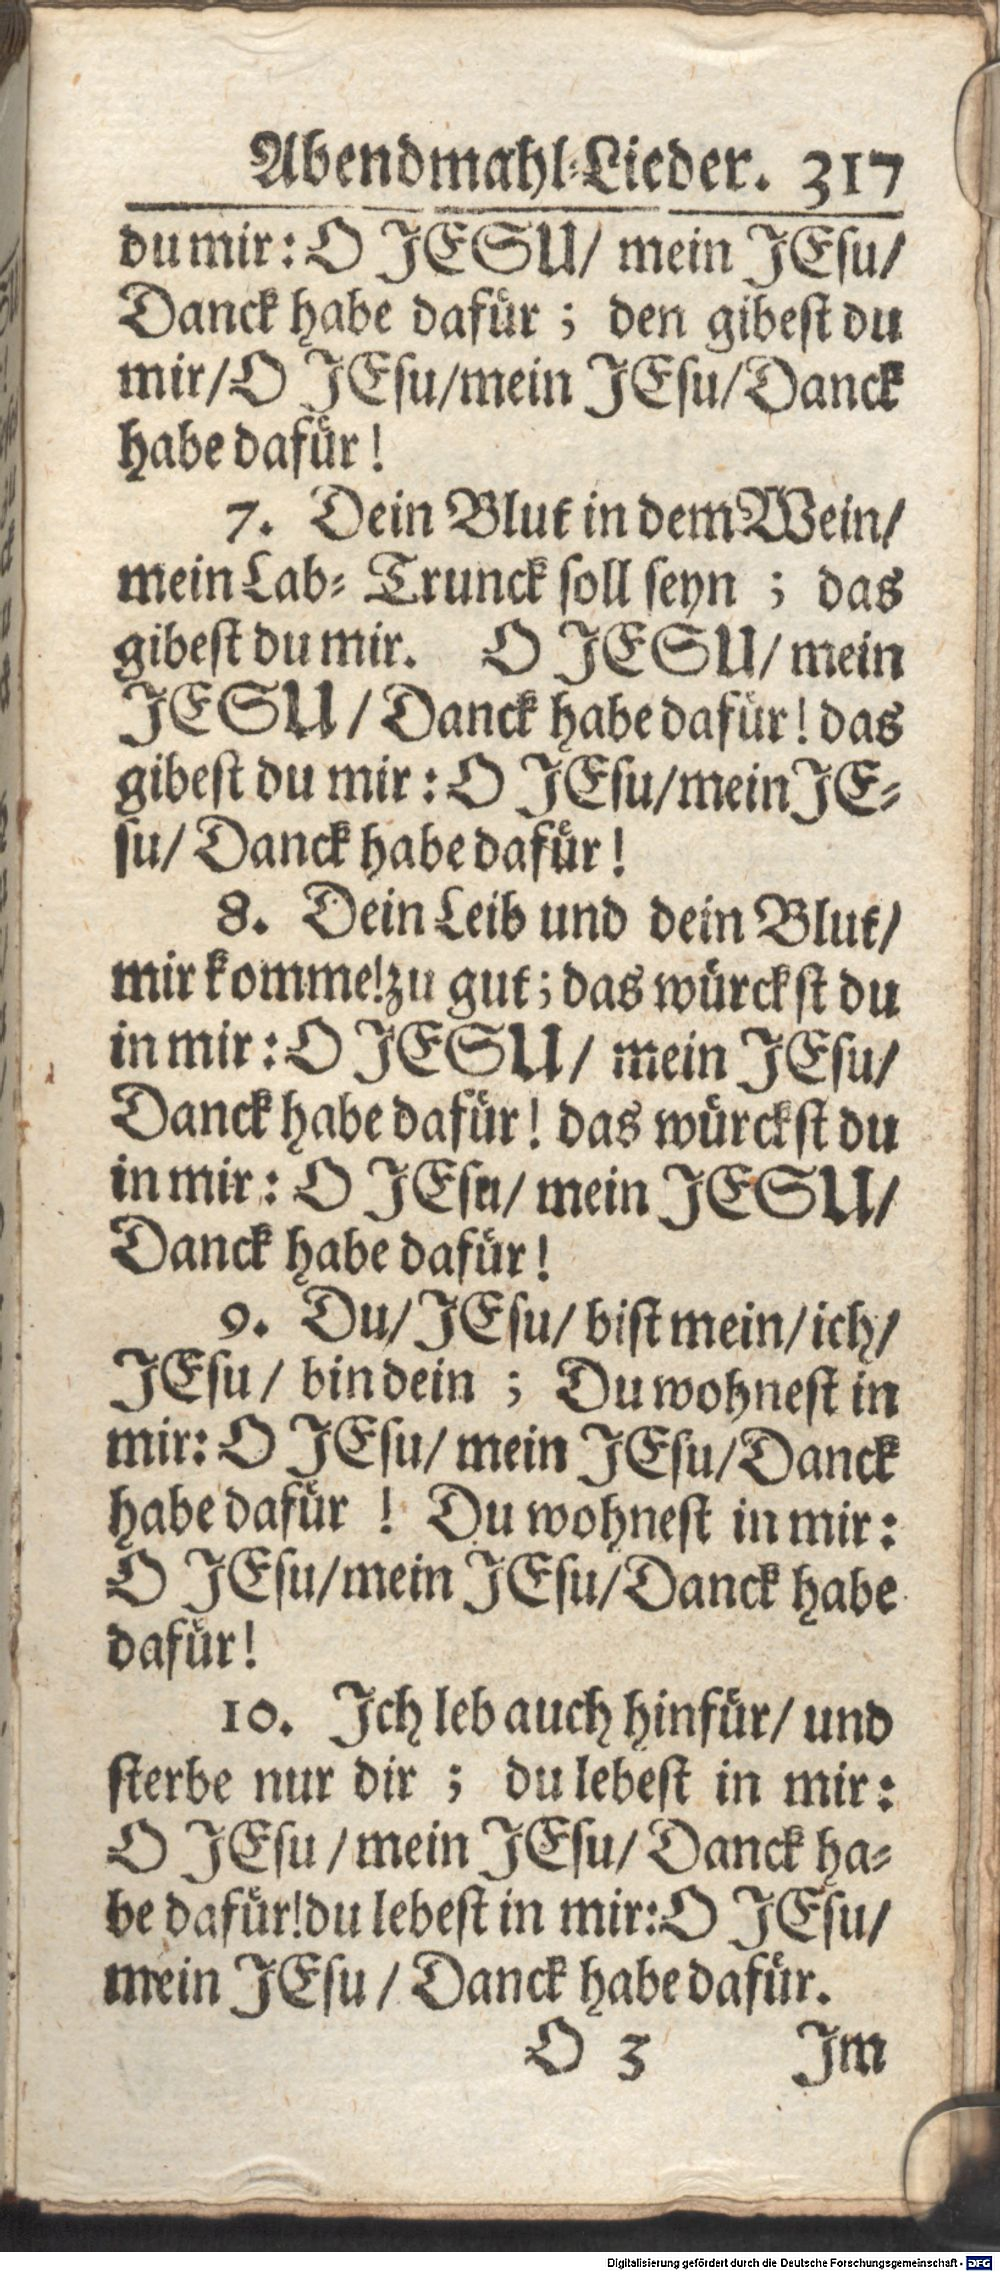 Abendmahl-Lieder. 317
du mir: O JESU/ mein JEsu/
Danck habe dafür; den gibest du
mir/ O JEsu/ mein JEsu/ Danck
habe dafür!
7. Dein Blut in dem Wein/
mein Lab- Trunck soll seyn; das
gibest du mir. O JESU/ mein
JESU/ Danck habe dafür! das
gibest du mir: O JEsu/ mein JE-
su/ Danck habe dafür!
8. Dein Leib und dein Blut/
mir komme! zu gut; das würckst du
in mir: O JESU/ mein JEsu/
Danck habe dafür! das würckst du
in mir: O JEsu/ mein JESU/
Danck habe dafür!
9. Du/ JEsu/ bist mein/ ich/
JEsu/ bin dein; Du wohnest in
mir: O JEsu/ mein JEsu/ Danck
habe dafür! Du wohnest in mir:
O JEsu/ mein JEsu/ Danck habe
dafür!
10. Ich leb auch hinfür/ und
sterbe nur dir; du lebest in mir:
O JEsu/ mein JEsu/ Danck ha-
be dafür! du lebest in mir: O JEsu/
mein JEsu/ Danck habe dafür.
O 3 Im
Digitalisierung gefördert durch die Deutsche Forschungsgemeinschaft - DFG